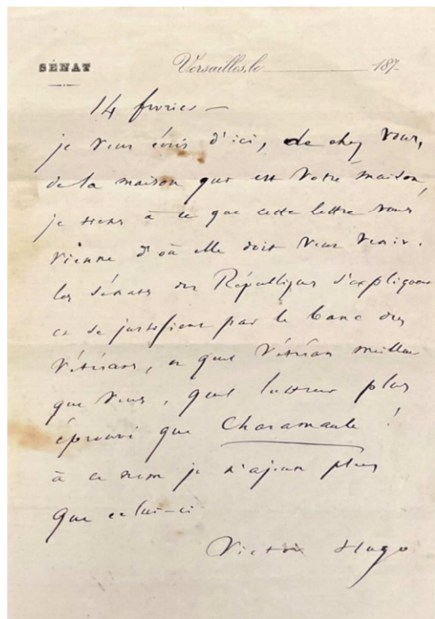 SÉNAT Versailles, le 187
14 février —
je vous écris d'ici, de chez vous,
de la maison qui est votre maison,
je tiens à ce que cette lettre vous
vienne d'où elle doit vous venir.
les sénats des Républiques s'expliquent
et se justifient par le banc des
vétérans, et quel vétéran meilleur
que vous, quel lutteur plus
éprouvé que Charamaule !
à ce nom je n'ajoute plus
que celui-ci
Victor Hugo